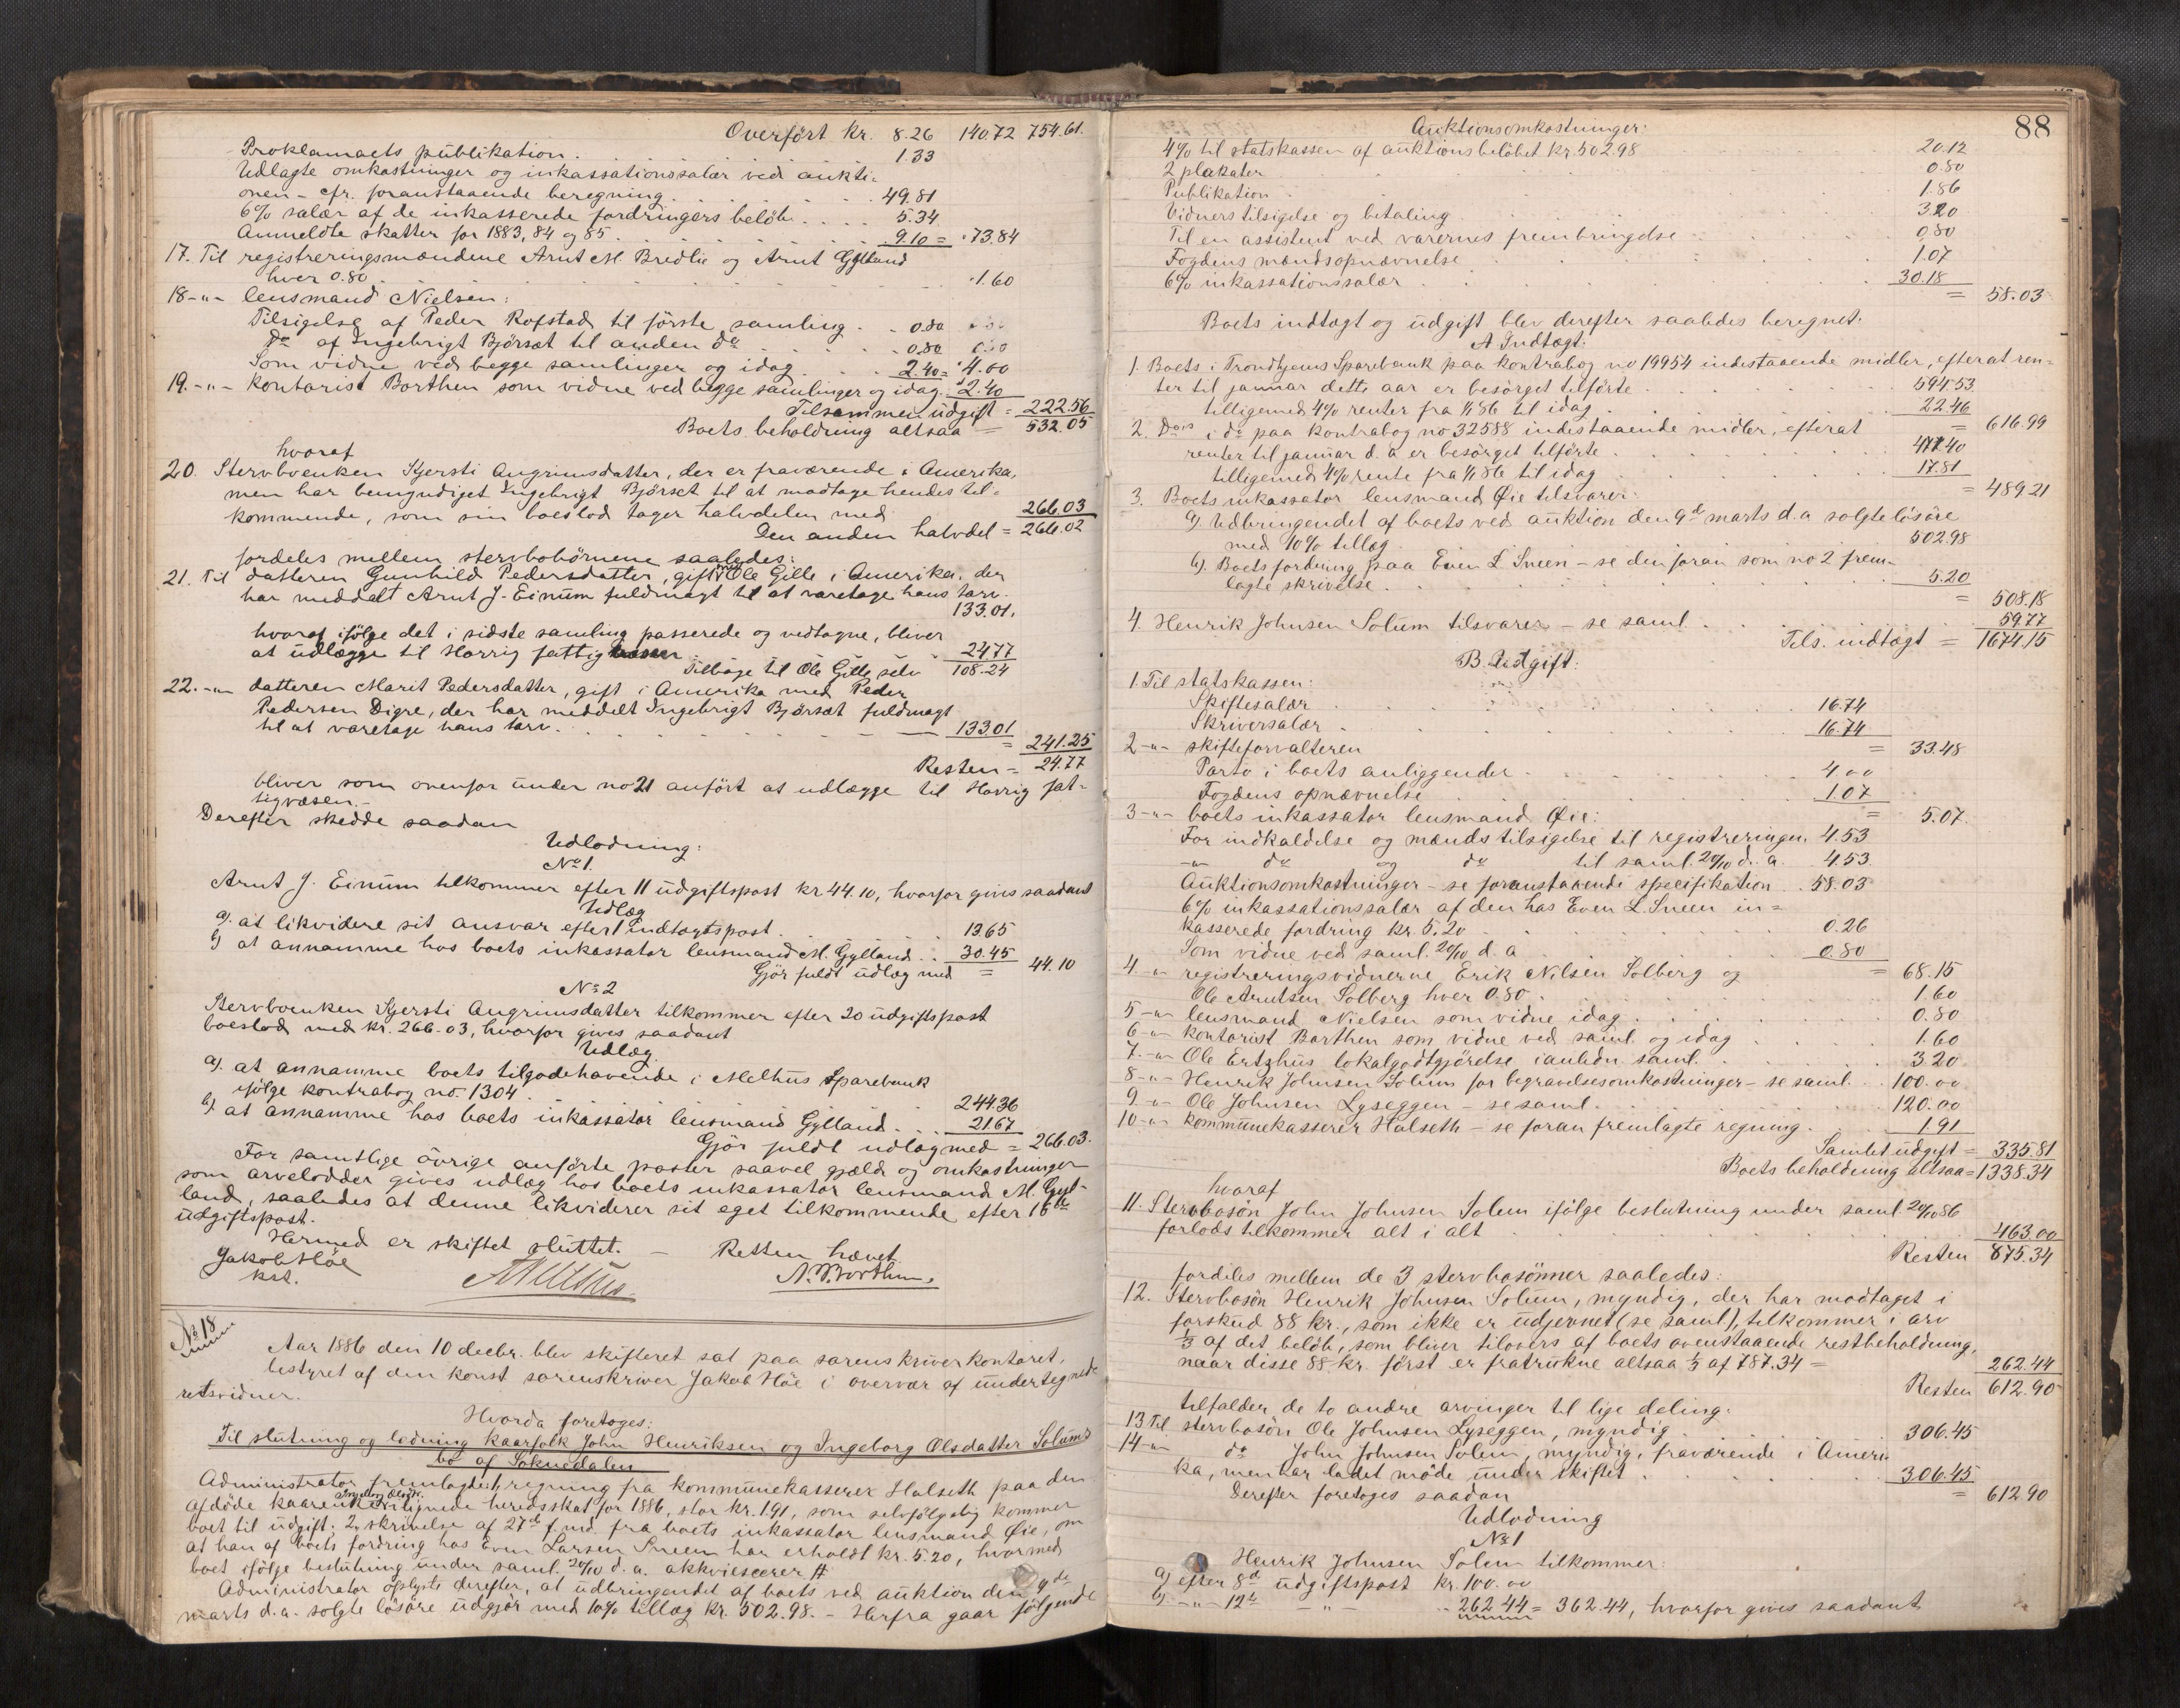 Overført Kr. 8.26 140.72 754.61.
Proklamaets publikation. 1.33
Udlagte omkostninger og inkassationssalær ved aukti=
onen - cfr. foranstaaende beregning 49.81
6% salær af de inkasserede fordringers beløb 5.34
Anmeldte skatter for 1883, 84 og 85 9.10 = 73.84
17. Til registreringsmændene Arnt M. Bredlie og Arnt Gylland
hver 0.80 1.60
18 -"- lensmand Nielsen:
Tilsigelse af Peder Rofstad til første samling 0.80
Do af Ingebrigt Bjørsæt til anden do 0.80
Som vidne ved begge samlinger og idag 2.40 = 4.00
19. -"- Kontorist Borthen som vidne ved begge samlinger og idag 2.40
Tilsammen udgift = 222.56
Boets beholdning altsaa = 532.05
hvoraf
20. Stervboenken Kjersti Angrimsdatter, der er fraværende i Amerika,
men har bemyndiget Ingebrigt Bjørset til at modtage hendes til=
kommende, som sin boeslod tager halvdelen med 266.03
Den anden halvdel = 266.02
fordeles mellem stervbobørnene saaledes:
21. Til datteren Gunhild Pedersdatter, gift med Ole Gille i Amerika, der
har meddelt Arnt J. Einum fuldmagt til at varetage hans tarv.
133.01,
hvoraf ifølge det i sidste samling passerede og vedtagne, bliver
at udlægge til Horrig fattigkasse 24.77
Tilbage til Ole Gille selv 108.24
22. -"- datteren Marit Pedersdatter, gift i Amerika med Peder
Pedersen Digre, der har meddelt Ingebrigt Bjørsæt fuldmagt
til at varetage hans tarv. 133.01
= 241.25
Resten = 24.77
bliver som ovenfor under no 21 anført at udlægge til Horrig fat=
tigvæsen.-
Derefter skedde saadan
Udlodning:
No 1.
Arnt J. Einum tilkommer efter 11 udgiftspost kr 44.10, hvorfor gives saadant
Udlæg
a). at likvidere sit ansvar efter 1 indtægtspost 13.65
b) at annamme hos boets inkassator lensmand M. Gylland 30.45
Gjør fuldt udlæg med = 44.10
No 2
Stervboenken Kjersti Angrimsdatter tilkommer efter 20 udgiftspost
boeslod med kr. 266.03, hvorfor gives saadant
Udlæg
a). at annamme boets tilgodehavende i Melhus Sparebank
ifølge kontrabog no. 1304 244.36
b). at annamme hos boets inkassator lensmand Gylland 21.67
Gjør fuldt udlæg med = 266.03.
For samtlige øvrige anførte poster saavel gjæld og omkostninger
som arvelodder gives udlæg hos boets inkassator lensmand M. Gyl-
land, saaledes at denne likviderer sit eget tilkommende efter 16de
udgiftspost.
Hermed er skiftet sluttet. - Retten hævet
Jakob Høe
kst.
N. P. Borthen.
No 18
Aar 1886 den 10 decbr. blev skifteret sat paa sorenskriverkontoret,
bestyret af den konst sorenskriver Jakob Høe i overvær af undertegnede
retsvidner.
Hvorda foretoges:
Til slutning og lodning kaarfolk John Henriksen og Ingeborg Olsdatter Solums
bo af Soknedalen
Administrator fremlagde 1, regning fra kommunekasserer Halseth paa den
afdøde kaarenke Ingeborg Olsdtr. ilignede heredsskat for 1886, stor kr. 1.91, som selvfølgelig kommer
boet til udgift; 2, skrivelse af 27de f. md. fra boets inkassator lensmand Øie, om
at han af boets fordring hos Even Larsen Sneen har erholdt kr. 5.20, hvormed
boet ifølge beslutning under saml. 20/10 d. a. akkviescerer
Administrator oplyste derefter, at udbringendet af boets ved auktion den 9de
marts d.a. solgte løsøre udgjør med 10% tillæg kr. 502.98. - Herfra gaar følgende
88
Auktionsomkostninger:
4% til statskassen af auktionsbeløbet kr. 502.98 20.12
2 plakater 0.80
Publikation 1.86
Vidners tilsigelse og betaling 3.20
Til en assistent ved varernes frembringelse 0.80
Fogdens mændsopnævnelse 1.07
6% inkassationssalær 30.18
= 58.03
Boets indtægt og udgift blev derefter saaledes beregnet:
A Indtægt:
1. Boets i Trondhjems Sparebank paa kontrabog no 19954 indestaaende midler, efterat ren=
ter til januar dette aar er besørget tilførte 594.53
tilligemed 4% renter fra 1/1 86 til idag 22.46
= 616.99
2. Do's i do paa kontrabog no 32588 indestaaende midler, efterat
renter til januar d. a er besørget tilførte 471.40
tilligemed 4% rente fra 1/1 86 til idag 17.81
= 489.21
3. Boets inkassator lensmand Øie tilsvarer:
a). Udbringendet af boets ved auktion den 9de marts d.a solgte løsøre
med 10% tillæg 502.98
b). Boets fordring paa Even L Sneen - se den foran som no 2 frem-
lagte skrivelse 5.20
= 508.18
4. Henrik Johnsen Solum tilsvarer - se saml 59.77
Tils. indtægt = 1674.15
B. Udgift:
1. Til statskassen:
Skiftesalær 16.74
Skriversalær 16.74
= 33.48
2 -"- skifteforvalteren
Porto i boets anliggender 4.00
Fogdens opnævnelse 1.07
= 5.07.
3 -"- boets inkassator lensmand Øie:
For indkaldelse og mænds tilsigelse til registreringen 4.53
-"- do og do til saml. 20/10 d. a. 4.53
Auktionsomkostninger - se foranstaaende specifikation 58.03
6% inkassationssalær af den hos Even L. Sneen in=
kasserede fordring kr. 5.20 0.26
Som vidne ved saml. 20/10 d. a 0.80
= 68.15
4 -"- registreringsvidnerne Erik Nilsen Solberg og
Ole Arntsen Solberg hver 0.80 1.60
5 -"- lensmand Nielsen som vidne idag 0.80
6 -"- kontorist Borthen som vidne ved saml. og idag 1.60
7. -"- Ole Ertzhus lokalgodtgjørelse i anledn. saml. 3.20
8 -"- Henrik Johnsen Solum for begravelsesomkostninger - se saml. 100.00
9 -"- Ole Johnsen Lyseggen - se saml. 120.00
10 -"- kommunekasserer Halseth - se foran fremlagte regning 1.91
Samlet udgift = 335.81
Boets beholdning altsaa = 1338.34
hvoraf
11. Stervbosøn John Johnsen Solem ifølge beslutning under saml. 20/10 86
forlods tilkommer alt i alt 463.00
Resten 875.34
fordeles mellem de 3 stervbosønner saaledes:
12. Stervbosøn Henrik Johnsen Solum, myndig, der har modtaget i
forskud 88 kr., som ikke er udjevnet (se saml), tilkommer i arv
1/3 af det beløb, som bliver tilovers af boets ovenstaaende restbeholdning,
naar disse 88 kr. først er fratrukne altsaa 1/3 af 787.34 = 262.44
Resten 612.90
tilfalder de to andre arvinger til lige deling:
13 Til stervbosøn Ole Johnsen Lyseggen, myndig 306.45
14 -"- do John Johnsen Solem, myndig, fraværende i Ameri-
ka, men har ladet møde under skiftet 306.45
= 612.90
Derefter foretoges saadan
Udlodning
No 1
Henrik Johnsen Solem tilkommer:
a) efter 8de udgiftspost kr. 100.00
b) -"- 12te -"- 262.44 = 362.44, hvorfor gives saadant